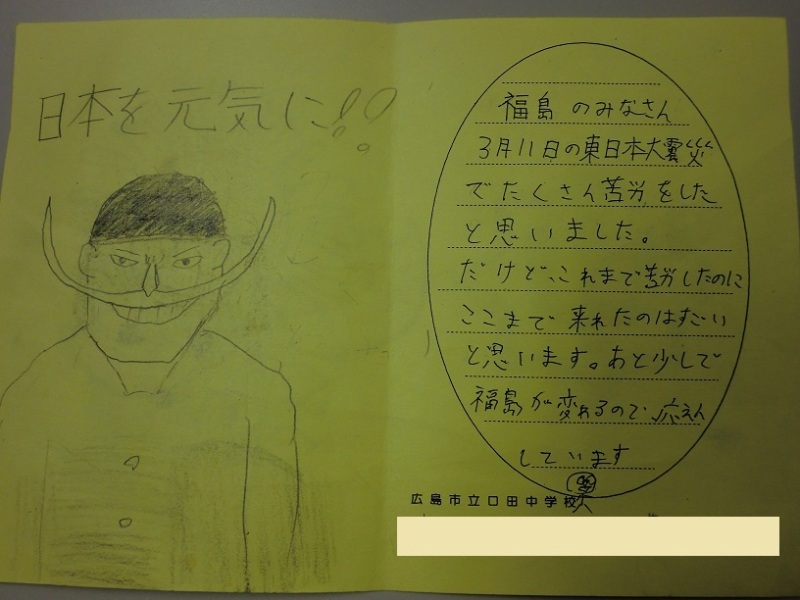 日本を元気に!!
福島のみなさん
3月11日の東日本大震災
でたくさん苦労をした
と思いました。
だけど、これまで苦労したのに
ここまで来れたのはすごい
と思います。あと少しで
福島が変わるので応えん
しています
広島市立口田中学校